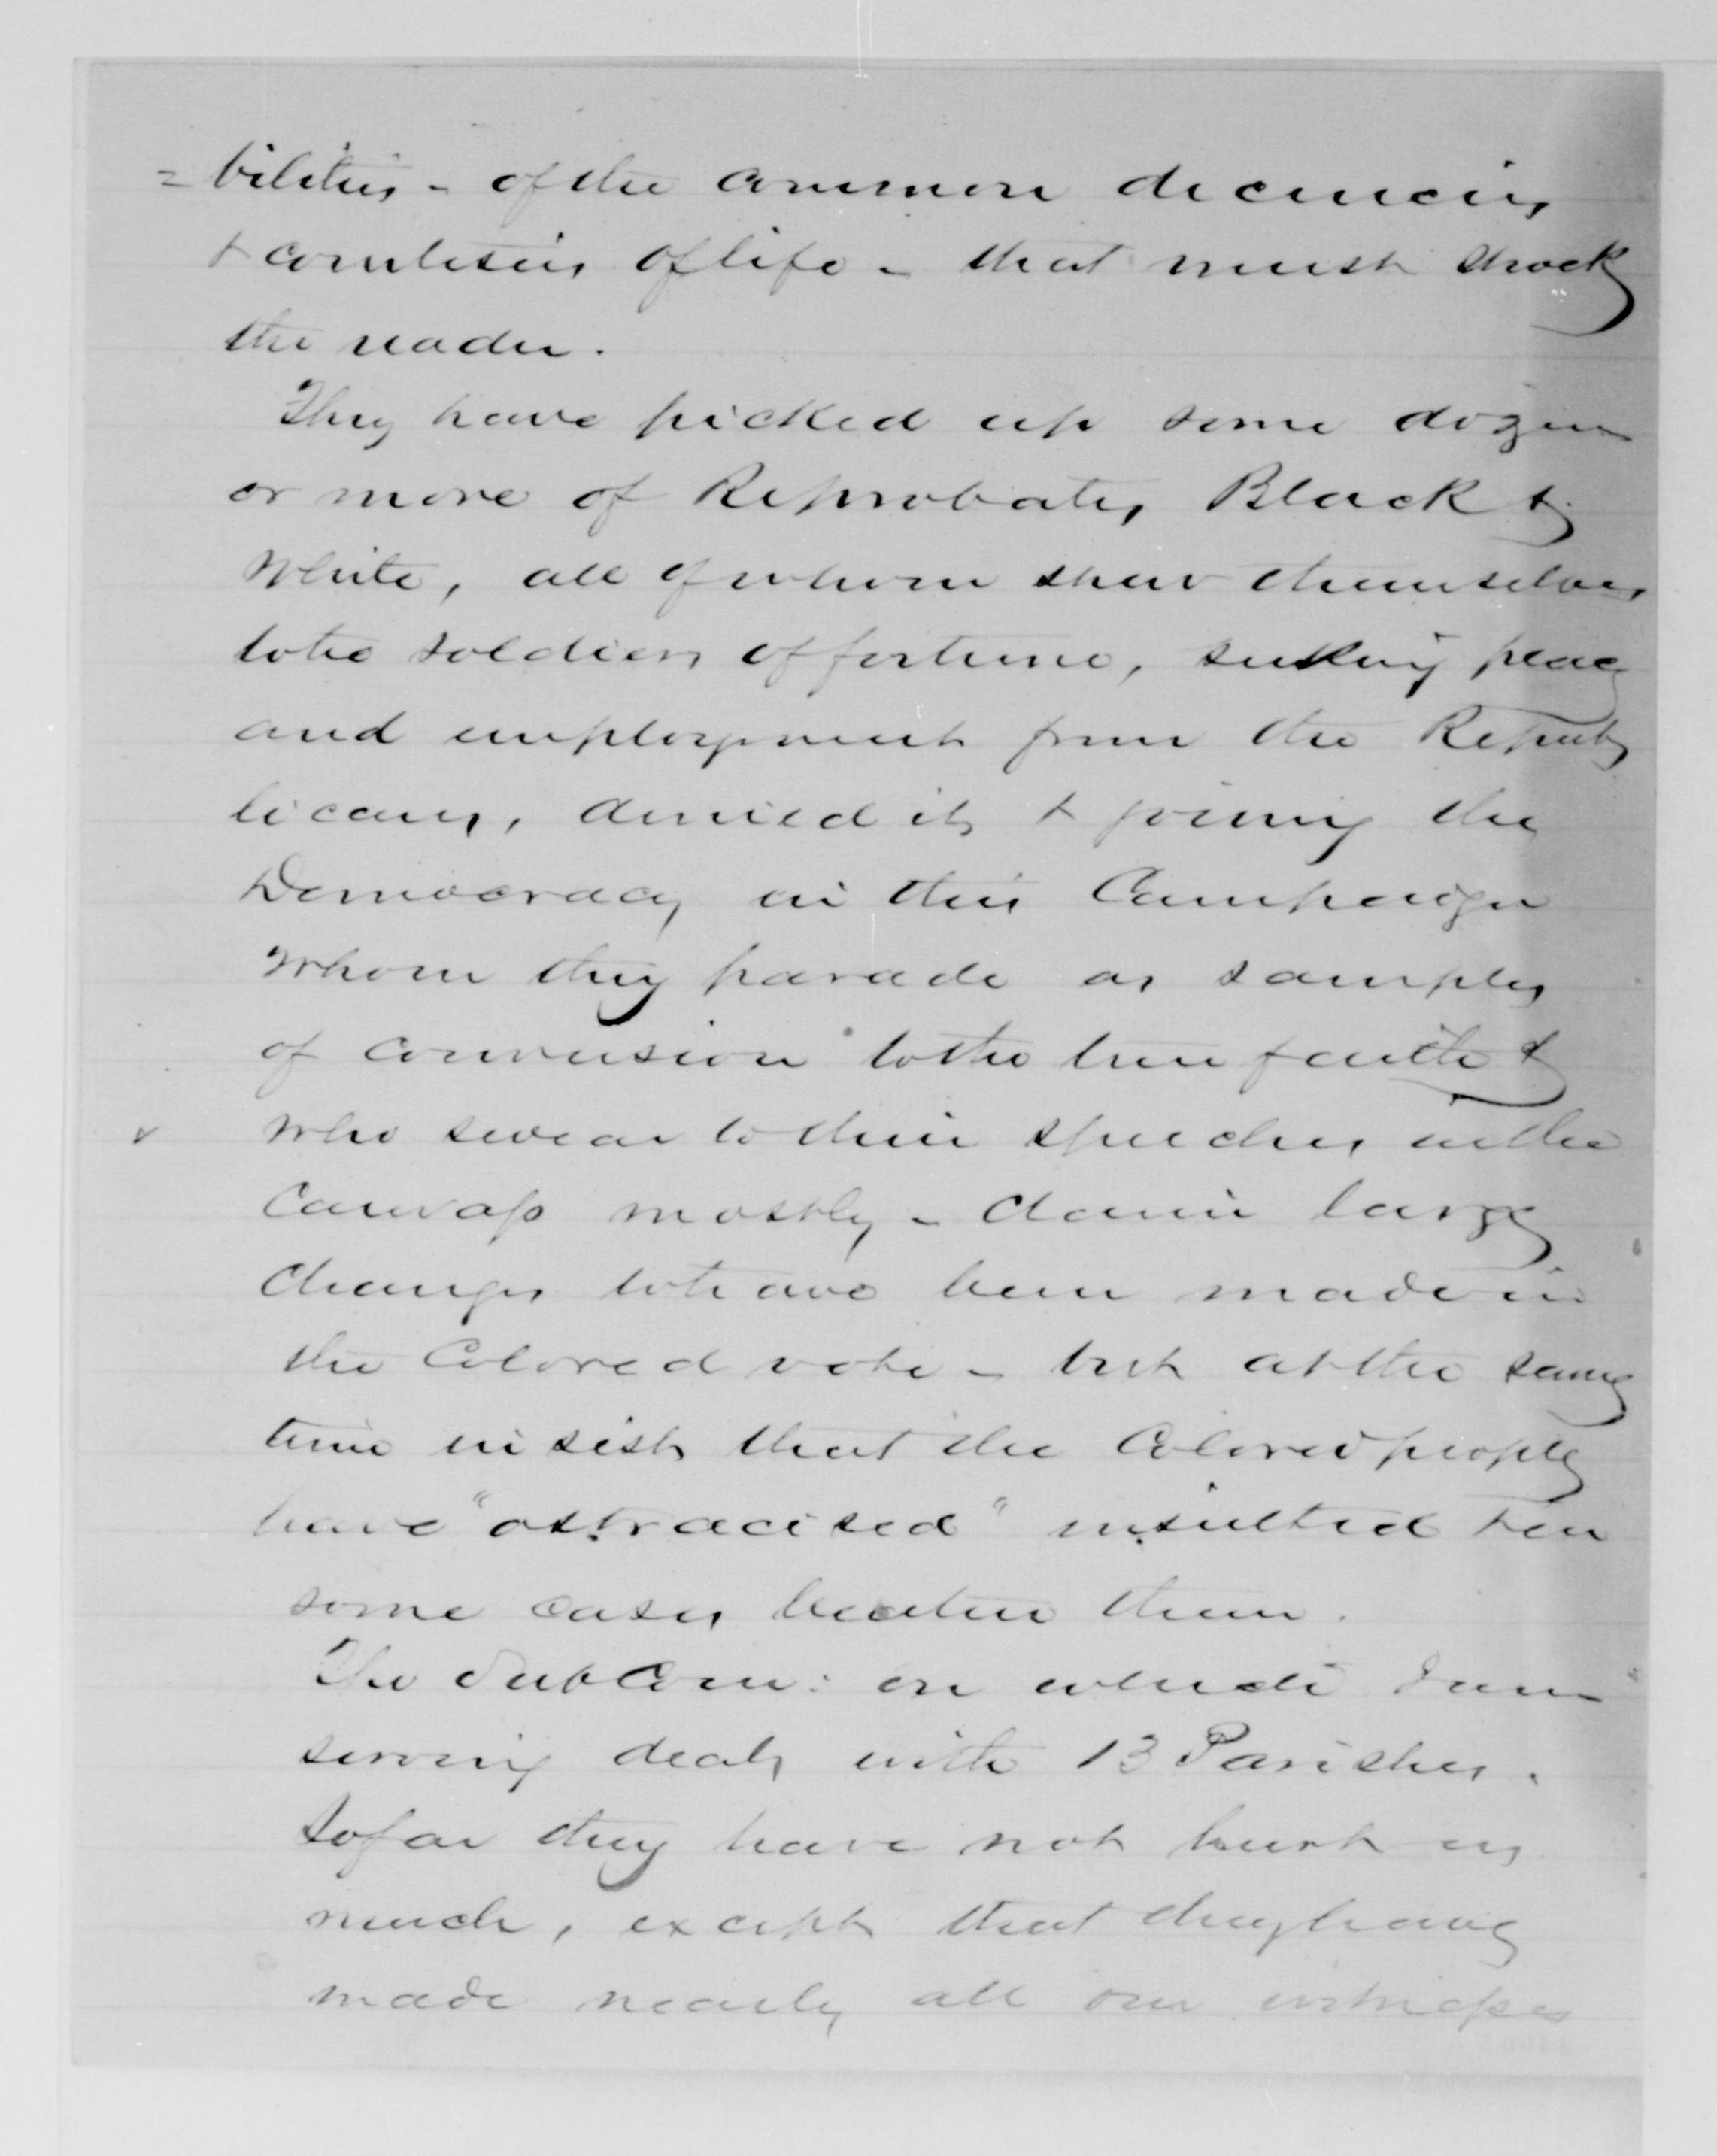 =bilities - of the common decencies
& courtesies of life - that must shock
the reader.
They have picked up some dozen
or more of Reprobates, Black &
White, all of whom show themselves
to be soldiers of fortune, seeking place
and employment from the Repub
licans, denied it, & joining the
Democracy in this Campaign
Whom they parade as samples
of conversion to the true faith &
who swear to their speeches in the
Canvass mostly - claim large
changes to have been made in
the Colored vote - but at the same
time insist that the Colored people
have "ostracised" insulted & in
some cases beaten them.
The Sub Com: on which I am
serving deals with 13 Parishes.
So far they have not hurt us
much, except that they have
made nearly all our witnesses